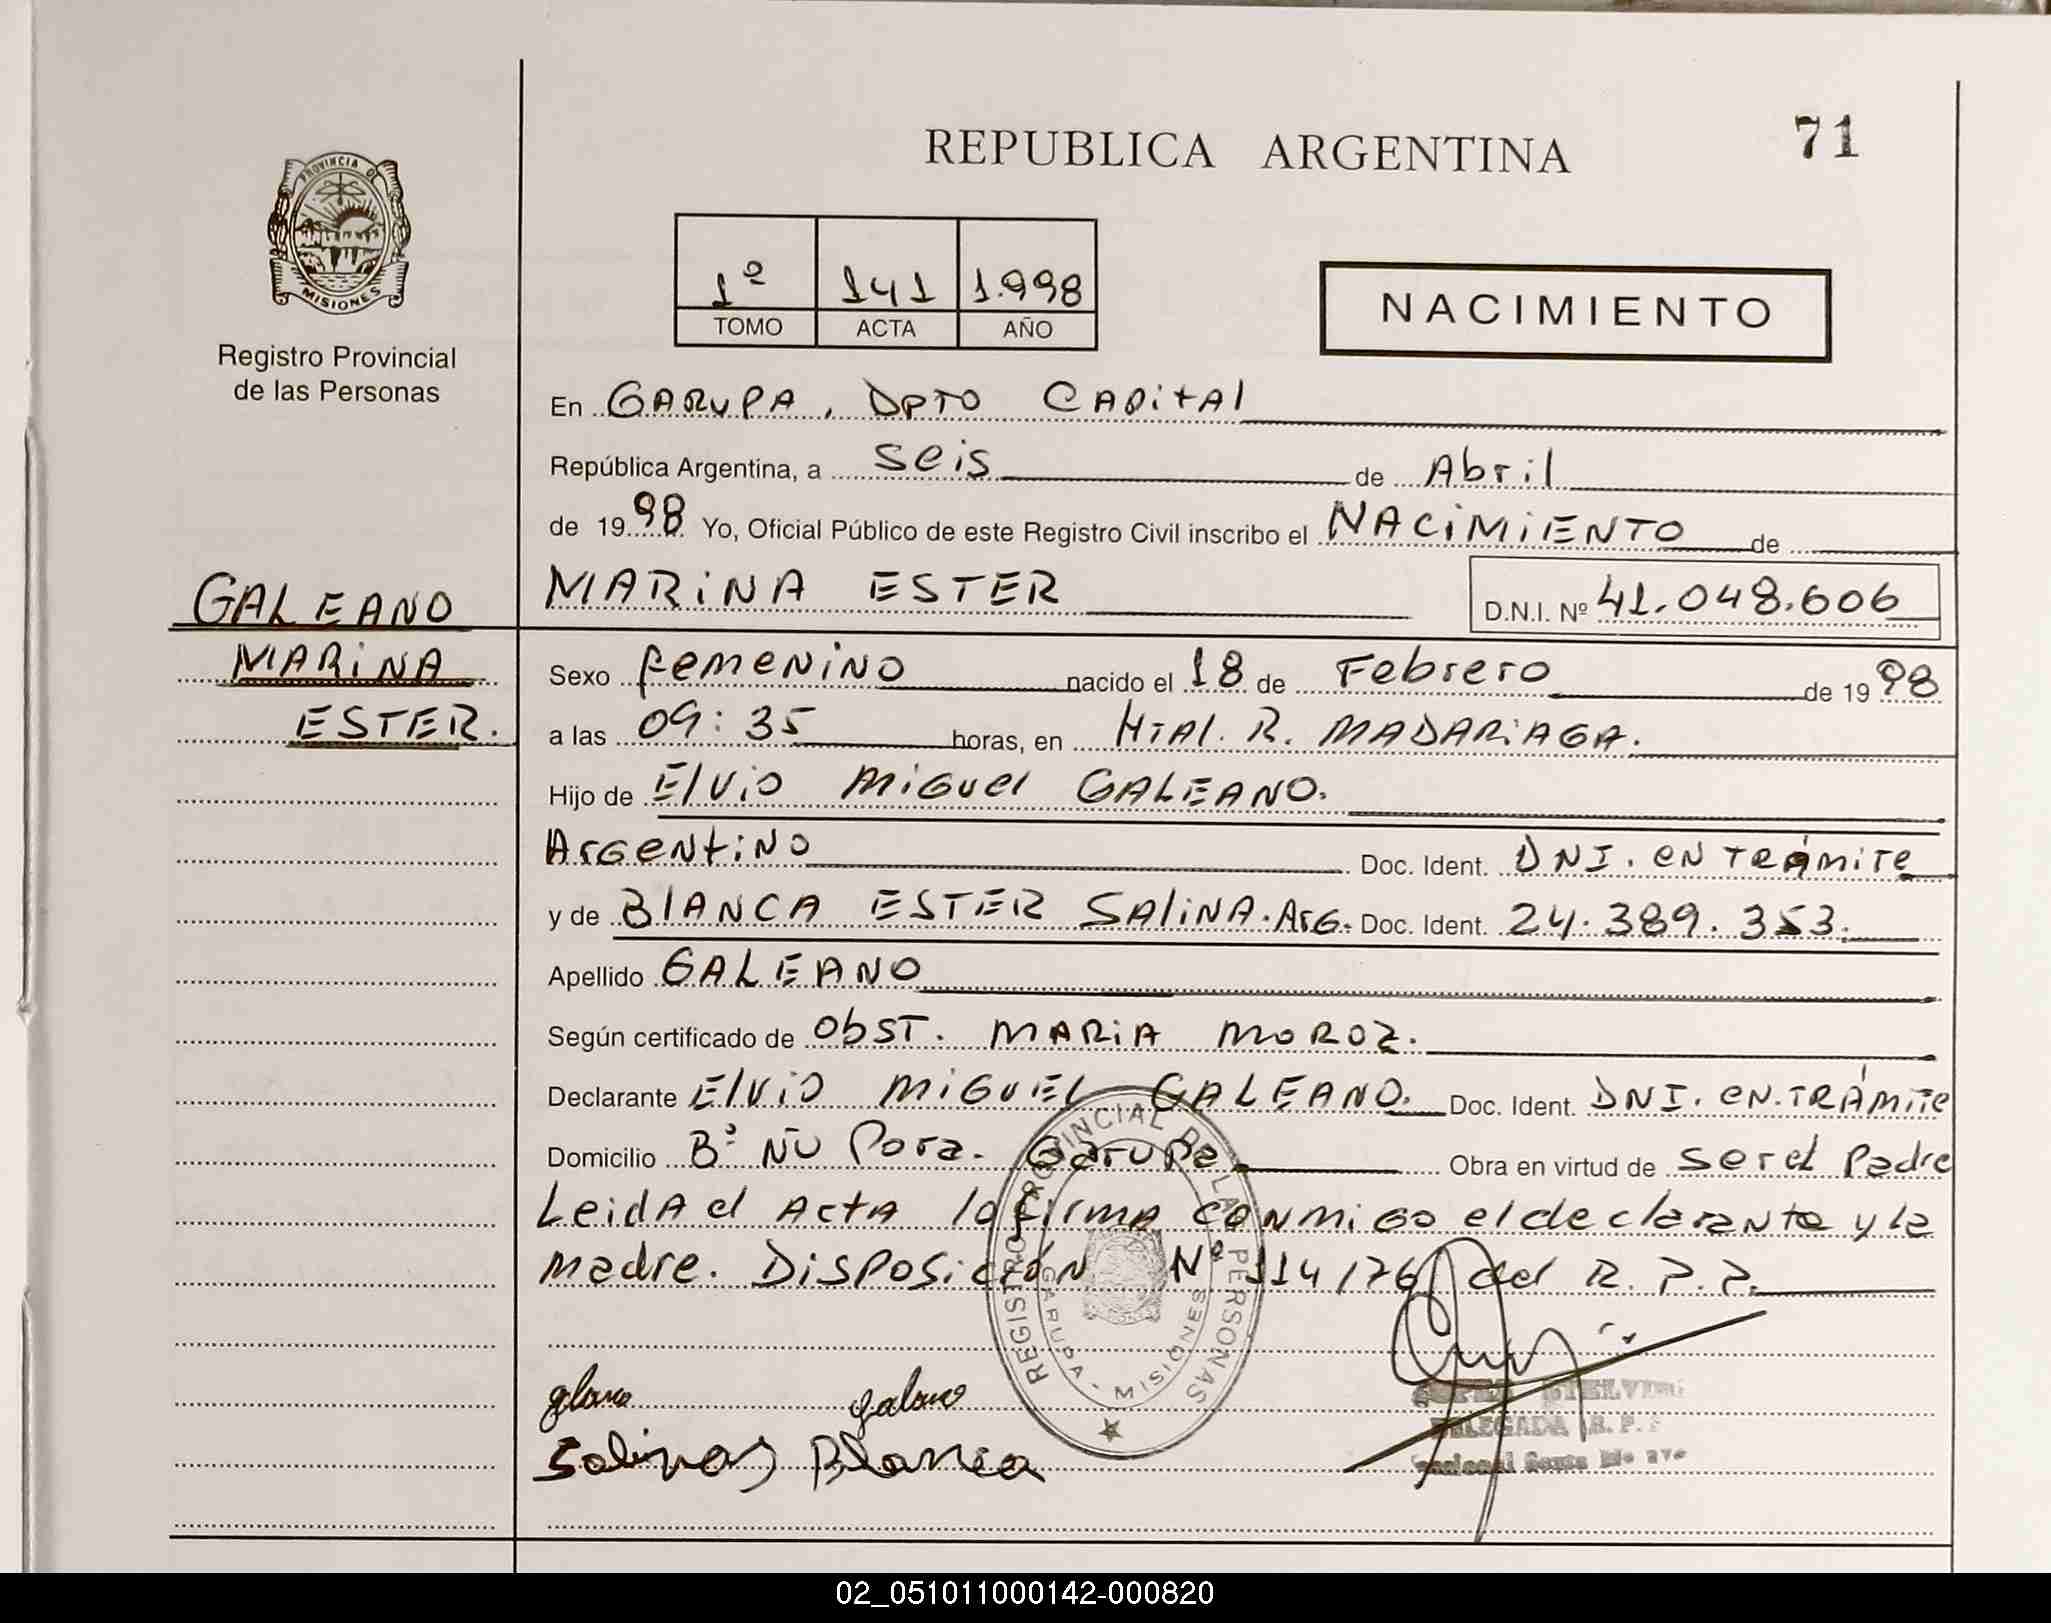 REPUBLICA ARGENTINA
71
PROVINCIA DE
MISIONES
Registro Provincial
de las Personas
1º 141 1.998
TOMO ACTA AÑO
NACIMIENTO
En GARUPA, DPTO CAPitAl
República Argentina, a seis de Abril
de 1998 Yo, Oficial Público de este Registro Civil inscribo el NACiMiENTO de
GALEANO
MARiNA
ESTER.
MARiNA ESTER D.N.I. Nº 41.048.606
Sexo femeNiNO nacido el 18 de Febrero de 1998
a las 09:35 horas, en HTAl. R. MADARiAGA.
Hijo de ElViO MiGuel GALEANO.
ArGeNtiNO Doc. Ident. DNI. eN TRAMiTe
y de BlANCA ESTER SAliNA. ArG. Doc. Ident. 24.389.353.
Apellido GALEANO
Según certificado de ObST. MARiA MOROZ.
Declarante ElViO MiGUEL GALEANO. Doc. Ident. DNI. eN.TRÁMiTe
Domicilio Bº ÑU Pora. Garupa Obra en virtud de ser el Padre
LeidA el ActA la firmA coNmiGo el declarante y la
madre. DiSPOSicióN Nº 114/76 del R.P.P.
REGISTRO PROVINCIAL DE LAS PERSONAS
GARUPA - MISIONES
galeano
Salinas Blanca
DELEGADA R. P.
02_051011000142-000820